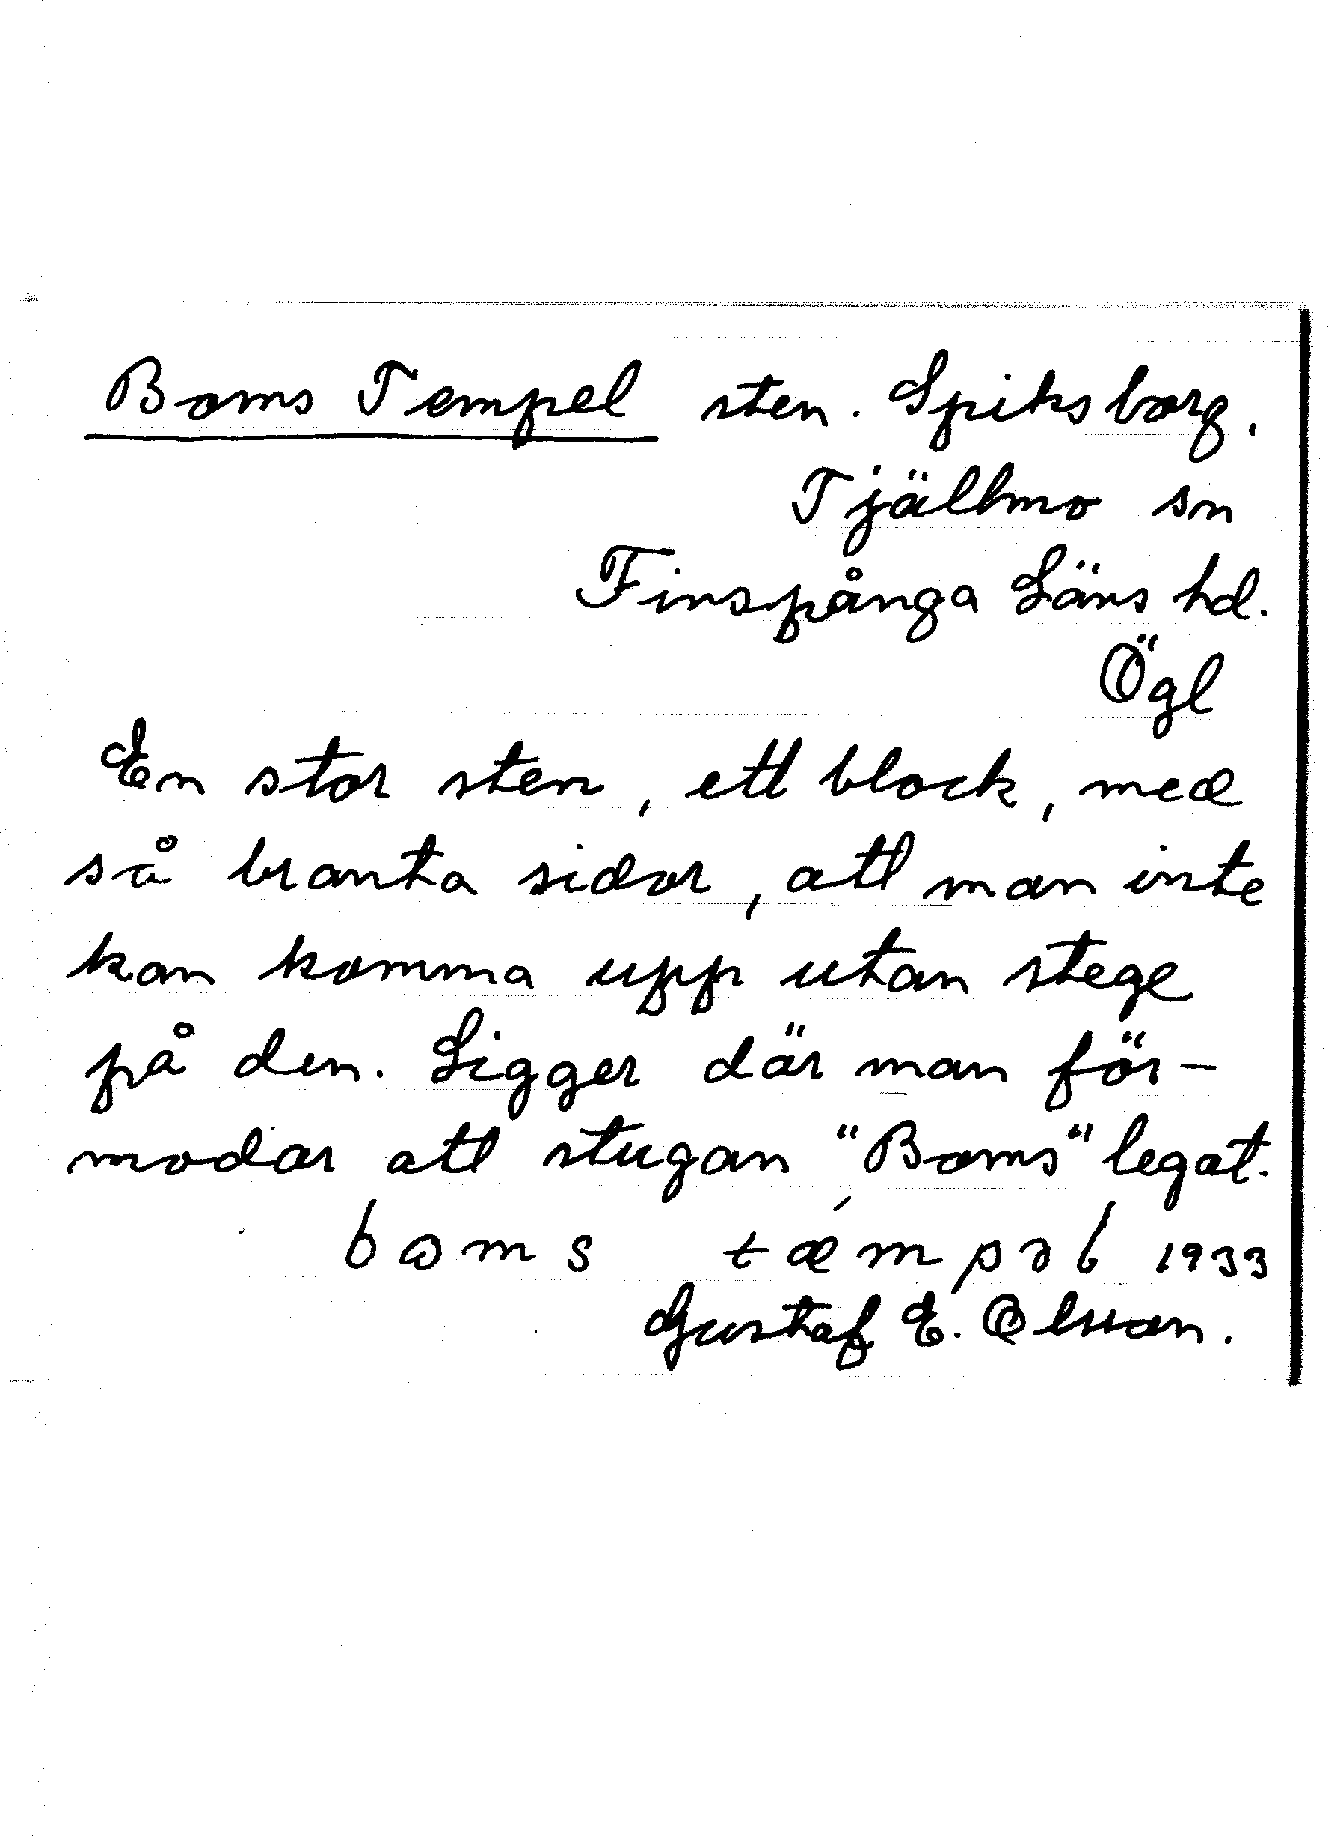 Boms Tempel sten. Spiksborg.
Tjällmo sn
Finspånga Läns hd.
Ögl
En stor sten, ett block, med
så branta sidor, att man inte
kan komma upp utan stege
på den. Ligger där man för-
modar att stugan "Boms" legat.
boms tæ´mpəl 1933
Gustaf E. Olsson.